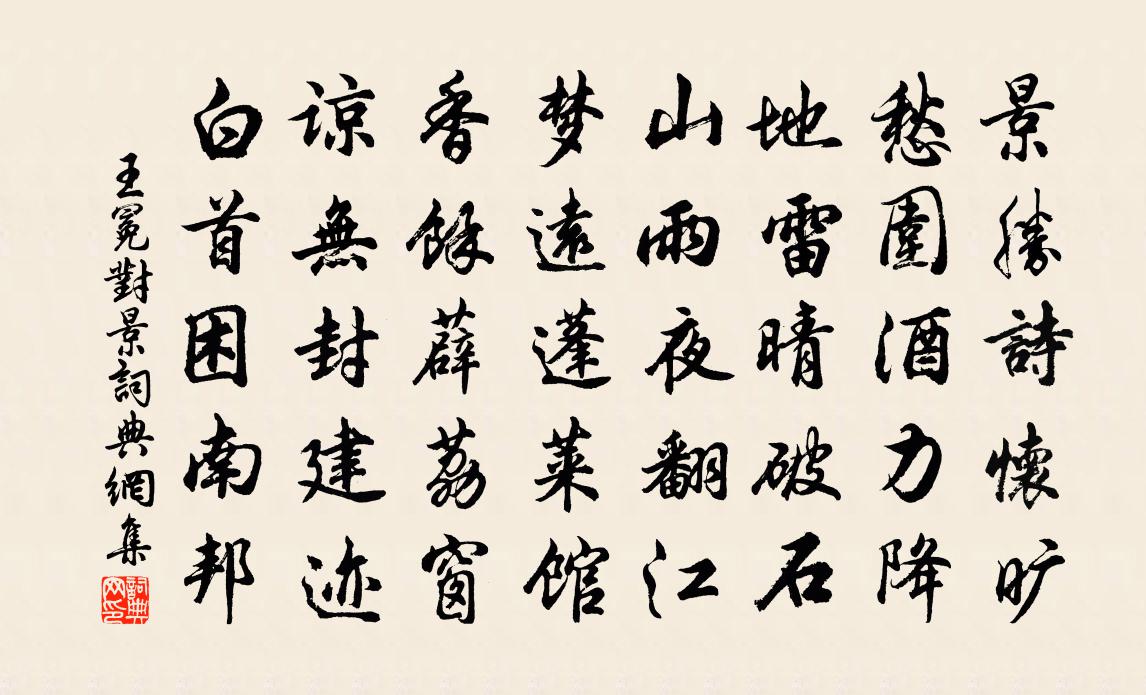 景勝詩懷旷
愁圍酒力降
地雷晴破石
山雨夜翻江
梦遠蓬莱馆
香餘薜荔窗
谅無封建迹
白首困南邦
王冕對景詞典網集
詞典网印